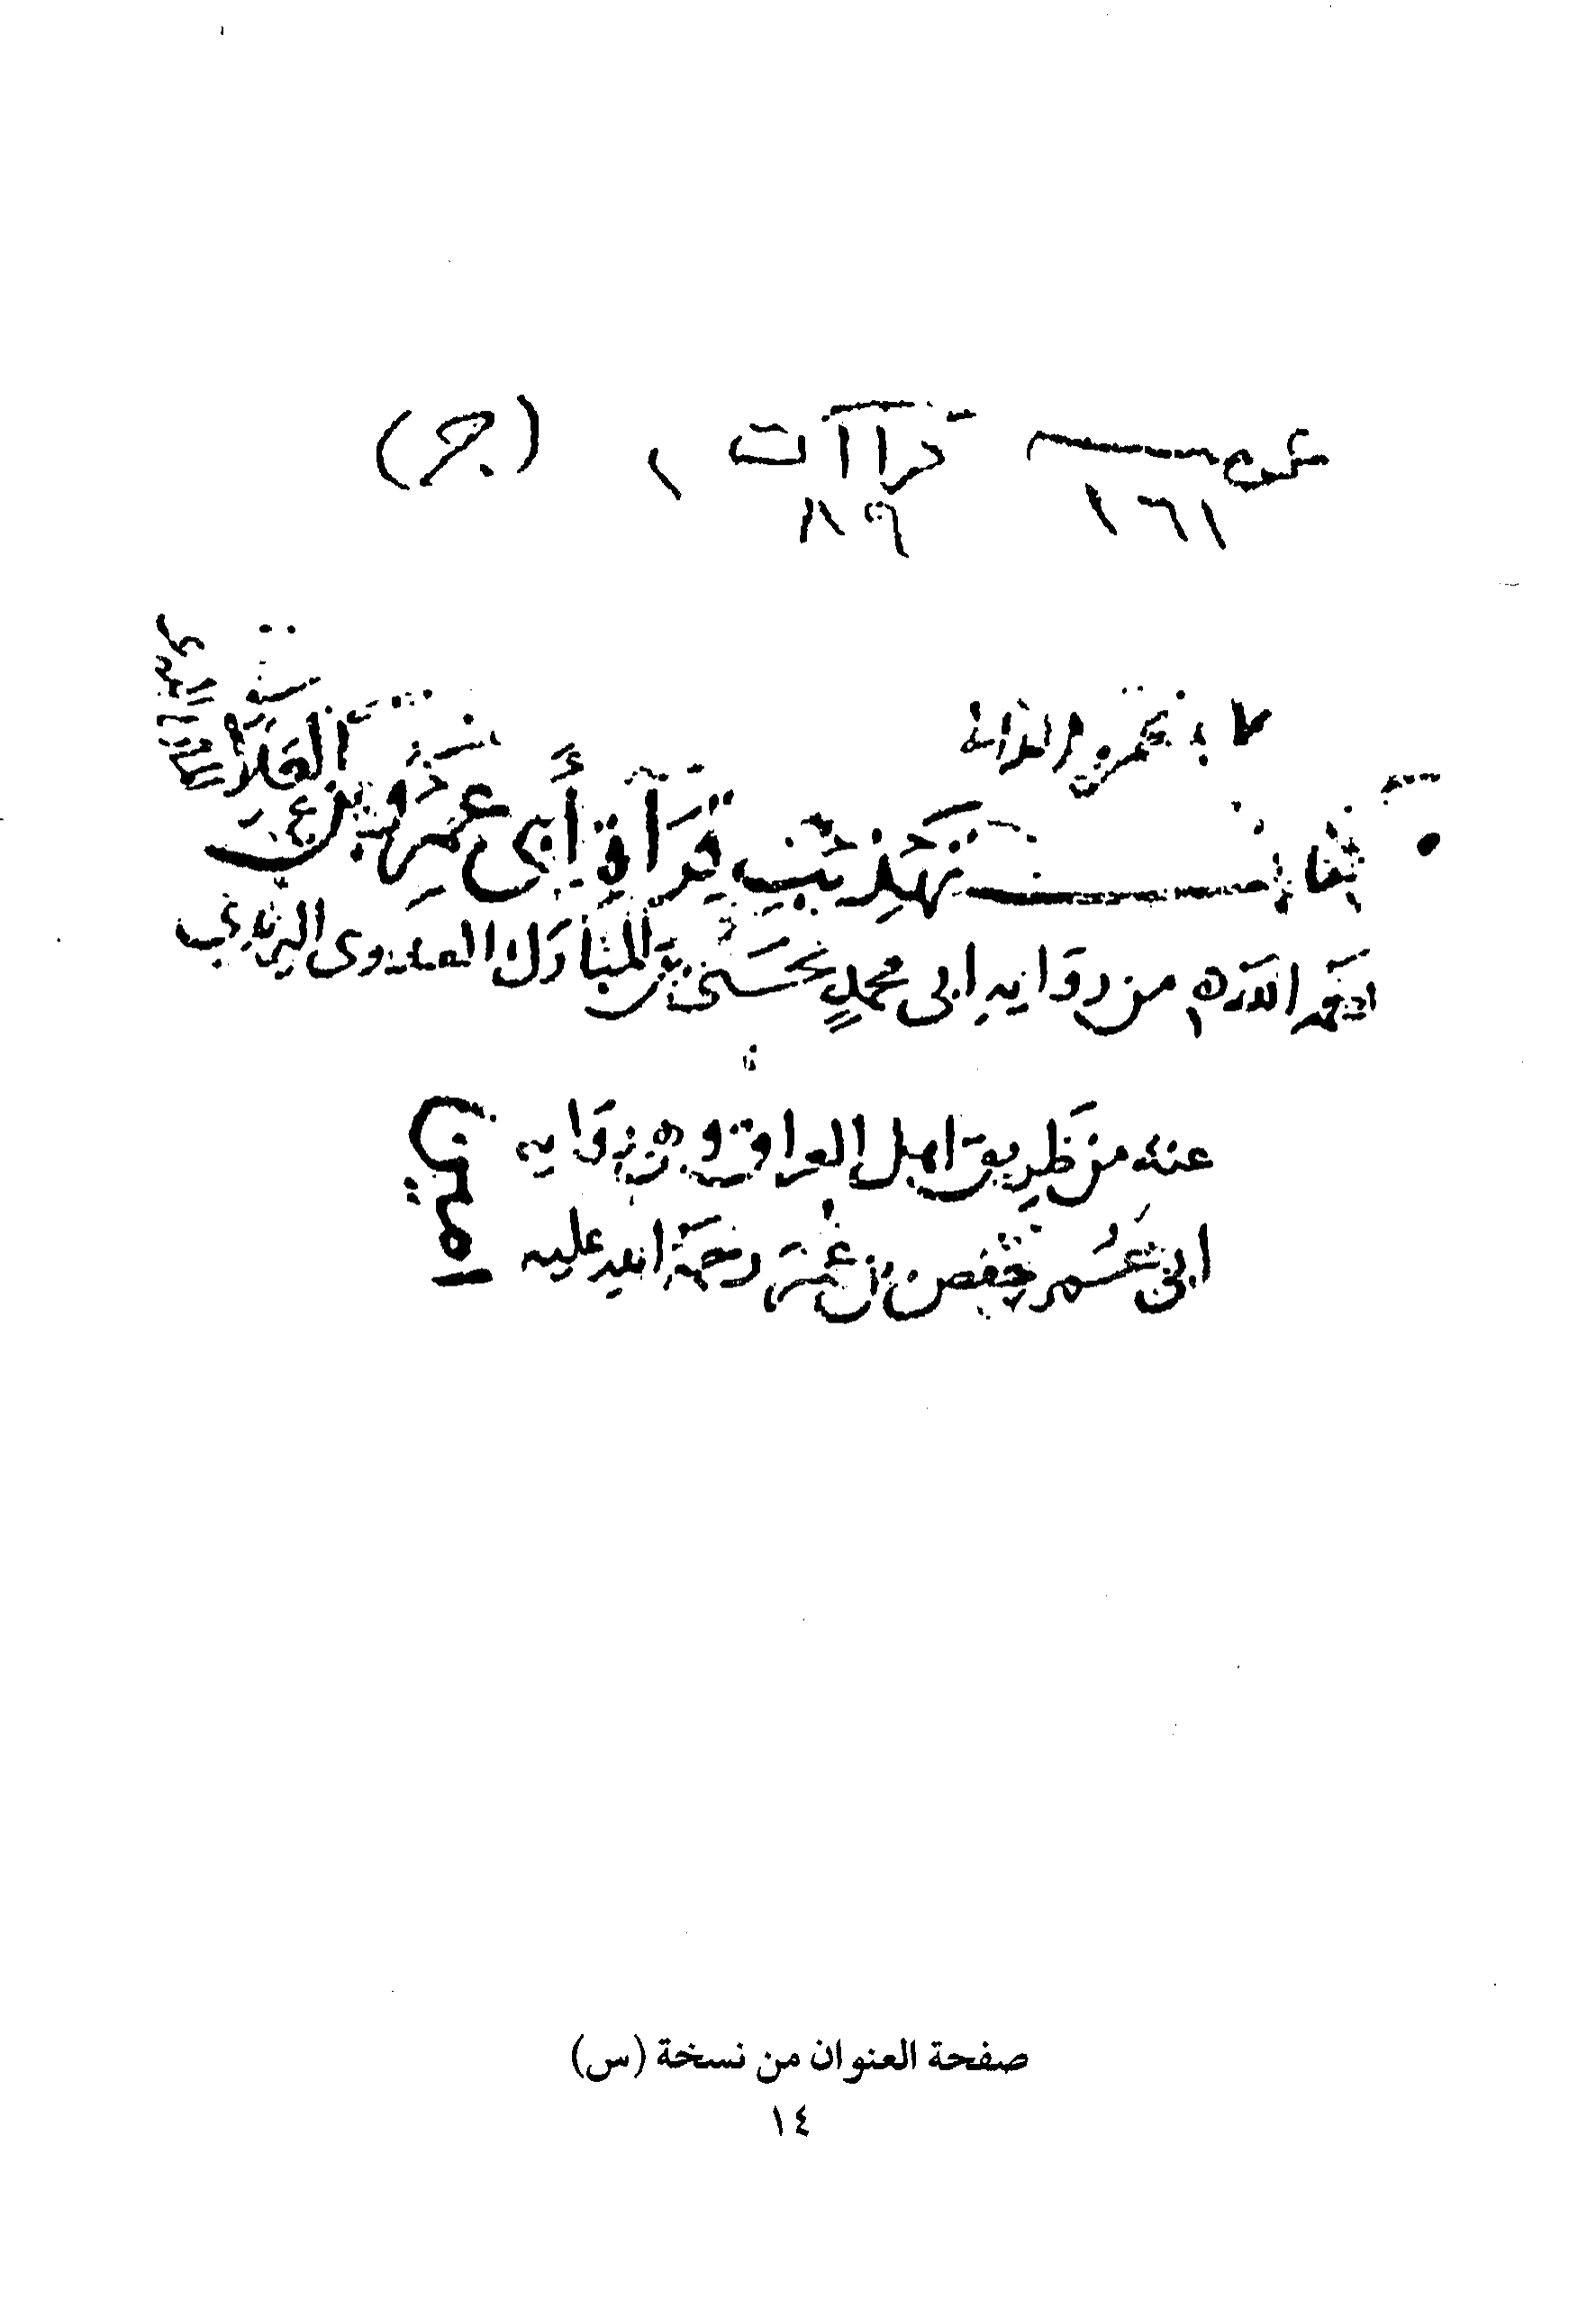 قراآت ١ (ج)
١٦١ ٨٩
كتاب تهذيب قرآة أبي عمرو بن العلآ
من رواية ابي محمد يحيى بن المبارك العدوي اليزيدي
عنه من طريق اهل العراق و رواية
ابي عمر حفص بن عمر رحمة الله عليه
صفحة العنوان من نسخة (س)
١٤